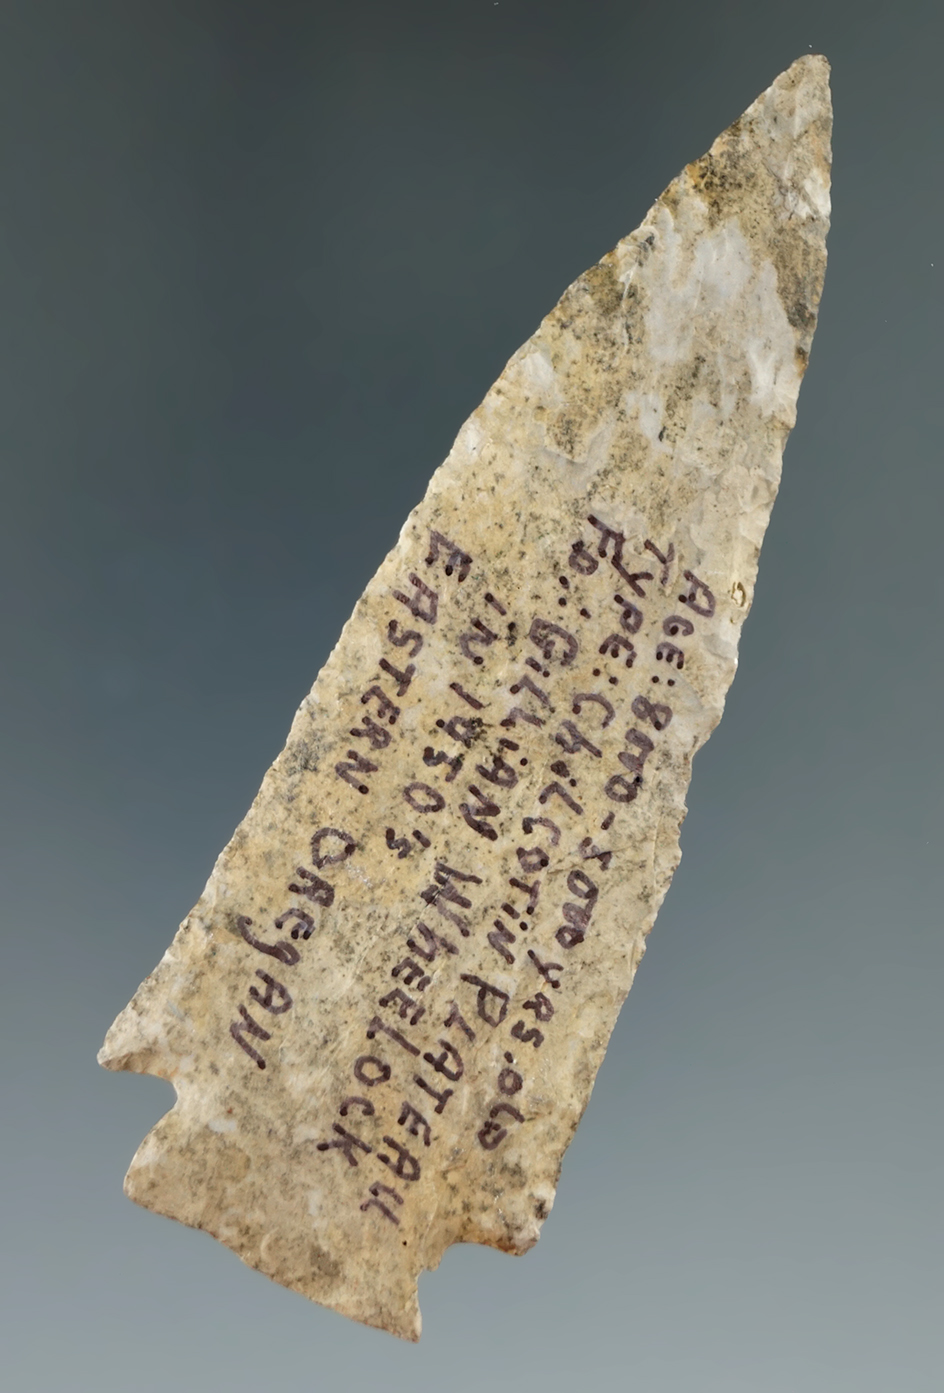 AGE: 8000-5000 YRS. OLD
TYPE: ChiLCOTiN PLATEAU
FD.: GiLLiAN WhEELOCK
iN 1930's
EASTERN OREgAN